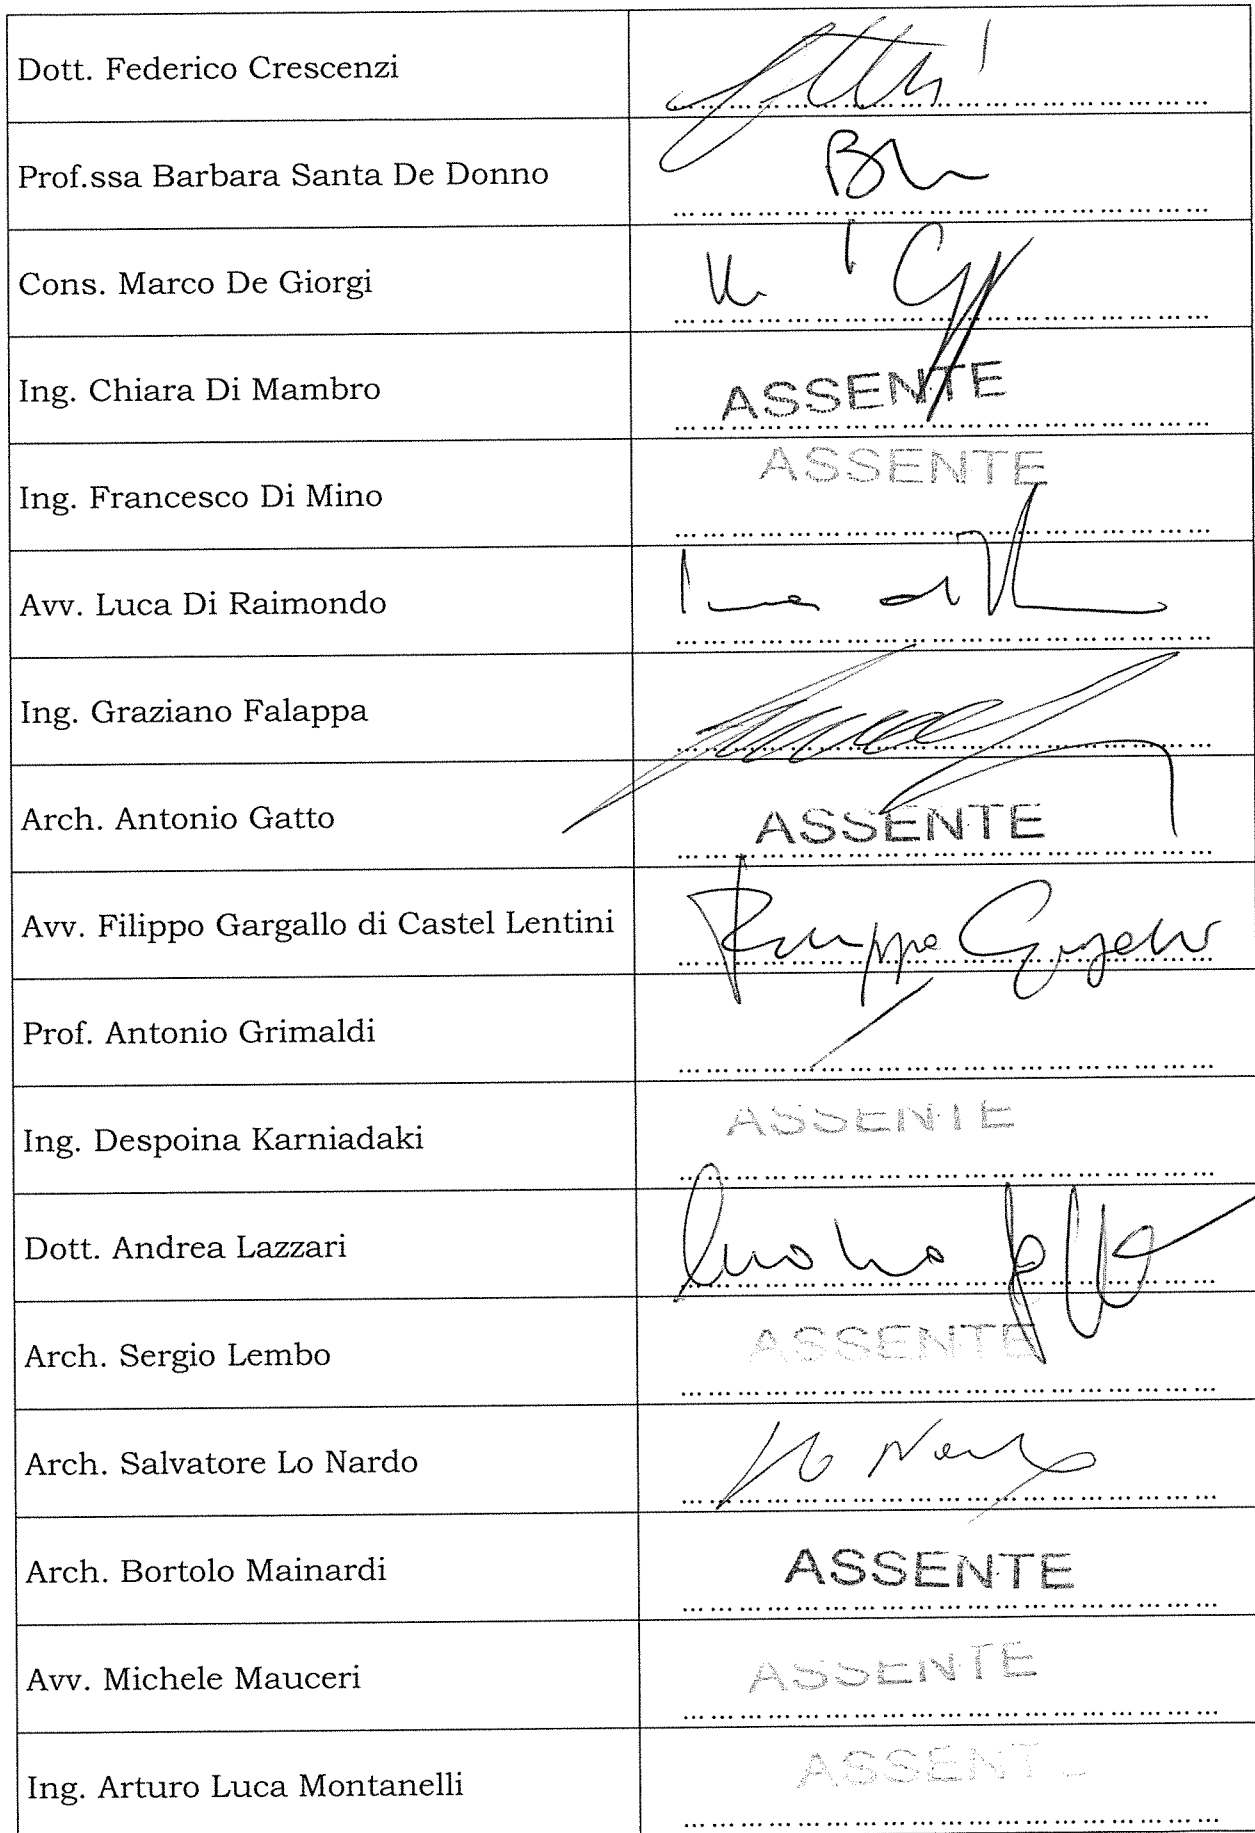 Dott. Federico Crescenzi
Prof.ssa Barbara Santa De Donno
Cons. Marco De Giorgi
Ing. Chiara Di Mambro ASSENTE
Ing. Francesco Di Mino ASSENTE
Avv. Luca Di Raimondo
Ing. Graziano Falappa
Arch. Antonio Gatto ASSENTE
Avv. Filippo Gargallo di Castel Lentini
Prof. Antonio Grimaldi
Ing. Despoina Karniadaki ASSENTE
Dott. Andrea Lazzari
Arch. Sergio Lembo ASSENTE
Arch. Salvatore Lo Nardo
Arch. Bortolo Mainardi ASSENTE
Avv. Michele Mauceri ASSENTE
Ing. Arturo Luca Montanelli ASSENTE